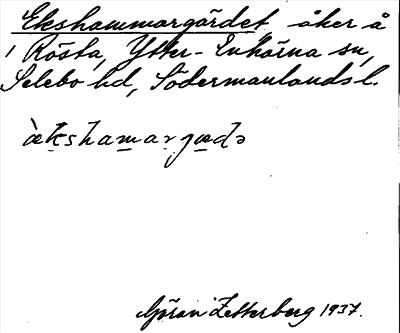 Ekshammargärdet åker å
1 Rösta, Ytter-Enhörna sn,
Selebo hd, Södermanlands l.
Göran Zetterberg 1937.